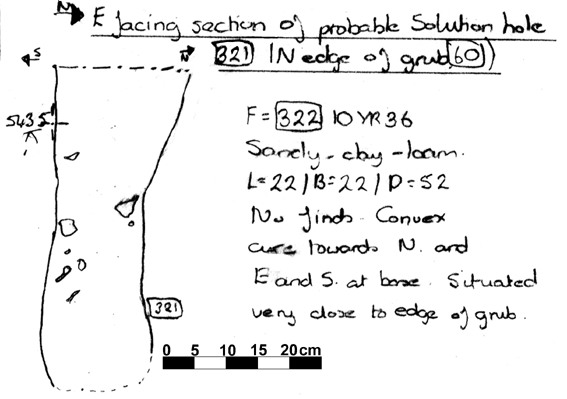 N E facing section of probable Solution hole
321 (N edge of grub 60)
S
N
5435
F = 322 10 YR 36
Sandy - clay - loam.
L=22 / B=22 / D=52
No finds. Convex
towards N. and
E and S. at base. Situated
very close to edge of grub.
321
0 5 10 15 20cm